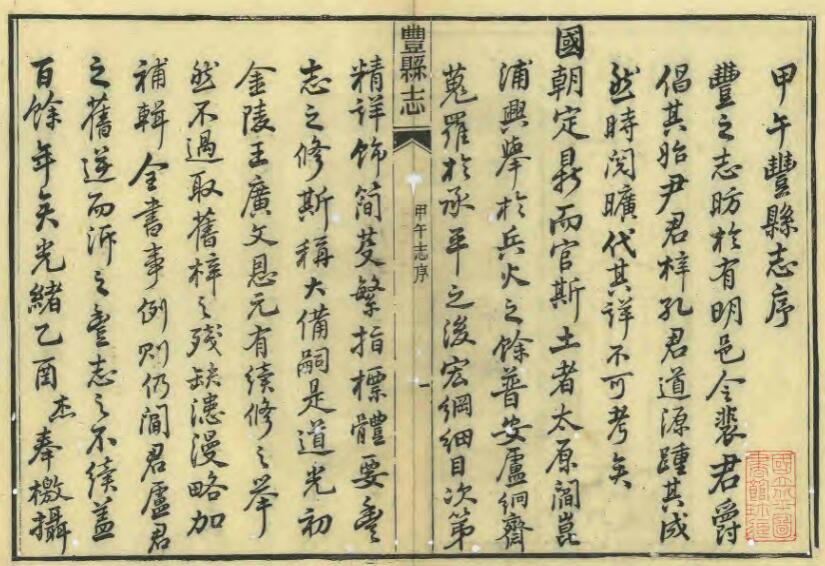 甲午豐縣志序
豐之志昉於有明邑令裴君爵
倡其始尹君梓孔君道源踵其成
然時閱曠代其詳不可考矣
國朝定鼎而官斯土者太原閻崑
浦興舉於兵火之餘普安盧絅齋
蒐羅於承平之後宏綱細目次第
豐縣志
甲午志序
一
精詳飭簡芟繁指標體要豐
志之修斯稱大備嗣是道光初
金陵王廣文恩元有續修之舉
然不過取舊梓之殘缺漶漫略加
補輯全書事例則仍閻君盧君
之舊遡而泝之豐志之不續蓋
百餘年矣光緒乙酉杰奉檄攝